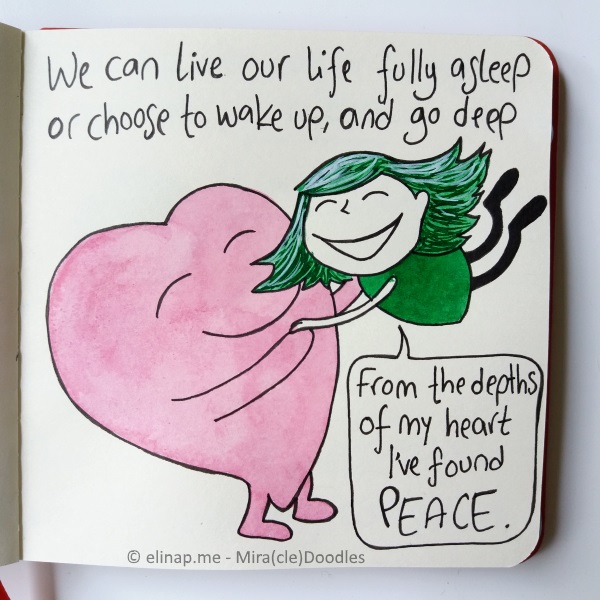 We can live our life fully asleep
or choose to wake up, and go deep
From the depths
of my heart
I've found
PEACE.
© elinap.me - Mira(cle)Doodles